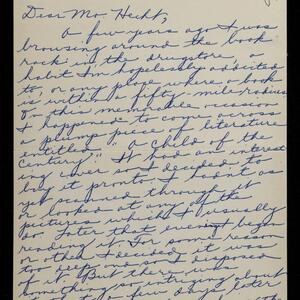 Dear Mr. Hecht,
A few years ago I was
browsing around the book
rack in the drugstore a
habit I'm hopelessly addicted
to, or any place where a book
is within a fifty mile radius
On this memorable occasion
I happened to come across
a plump piece of literature
entitled "A Child of the
Century". It had an interest
ing cover so I decided to
buy it pronto. I hadn't as
yet scanned through it
or looked at any of the
pictures which I usually
Later that evening began
reading it. For some reason
or other I decided it was
too deep so I disposed
of it. But there was
something so intriguing about
it a few days later